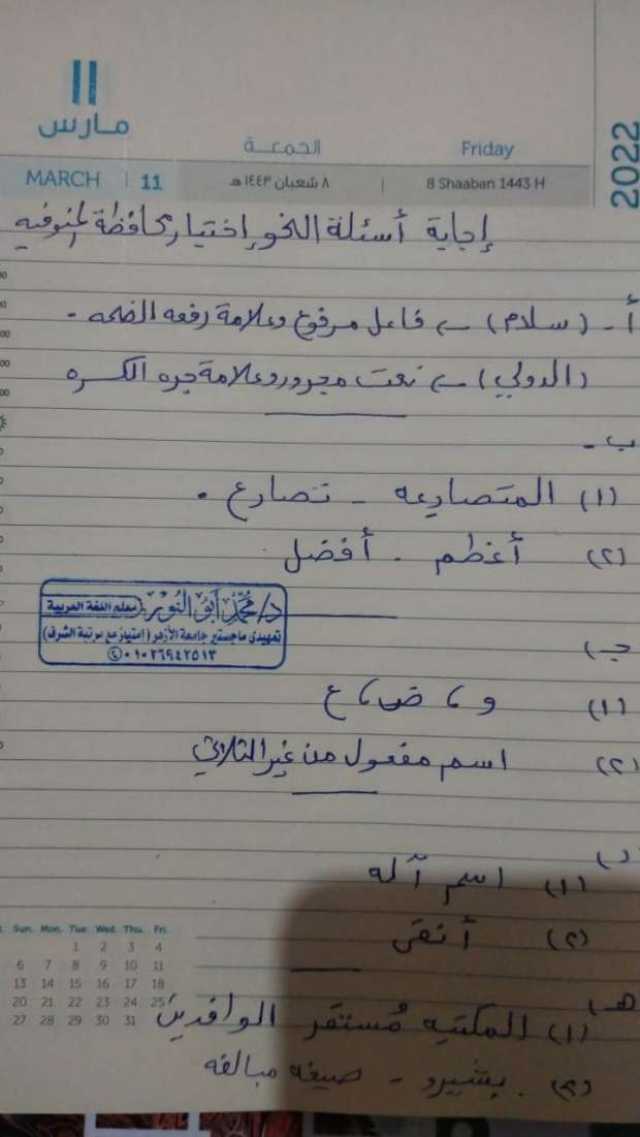 11
مارس
2022
الجمعة
Friday
MARCH 11
٨ شعبان ١٤٤٣ هـ
8 Shaaban 1443 H
إجابة أسئلة النحو إختيار محافظة المنوفيه
أ - (سلام) ← فاعل مرفوع وعلامة رفعه الضمه -
(الدولي) ← نعت مجرور وعلامة جره الكسره
ب -
(١) المتصارعه - تصارع .
(٢) أعظم - أفضل
د/ محمد أبو النور (معلم اللغة العربية)
تمهيدى ماجستير جامعة الأزهر (امتياز مع مرتبة الشرف)
٠١٠٢٦٩٤٢٥١٣
جـ)
(١) و ، ض ، ع
(٢) اسم مفعول من غير الثلاثي
د)
(١) اسم آله
(٢) أنقى
هـ)
(١) المكتبه مُستقر الوافدين
(٢) بشير - صيغه مبالغه
Sun. Mon. Tue Wed. Thu. Fri.
1 2 3 4
6 7 8 9 10 11
13 14 15 16 17 18
20 21 22 23 24 25
27 28 29 30 31